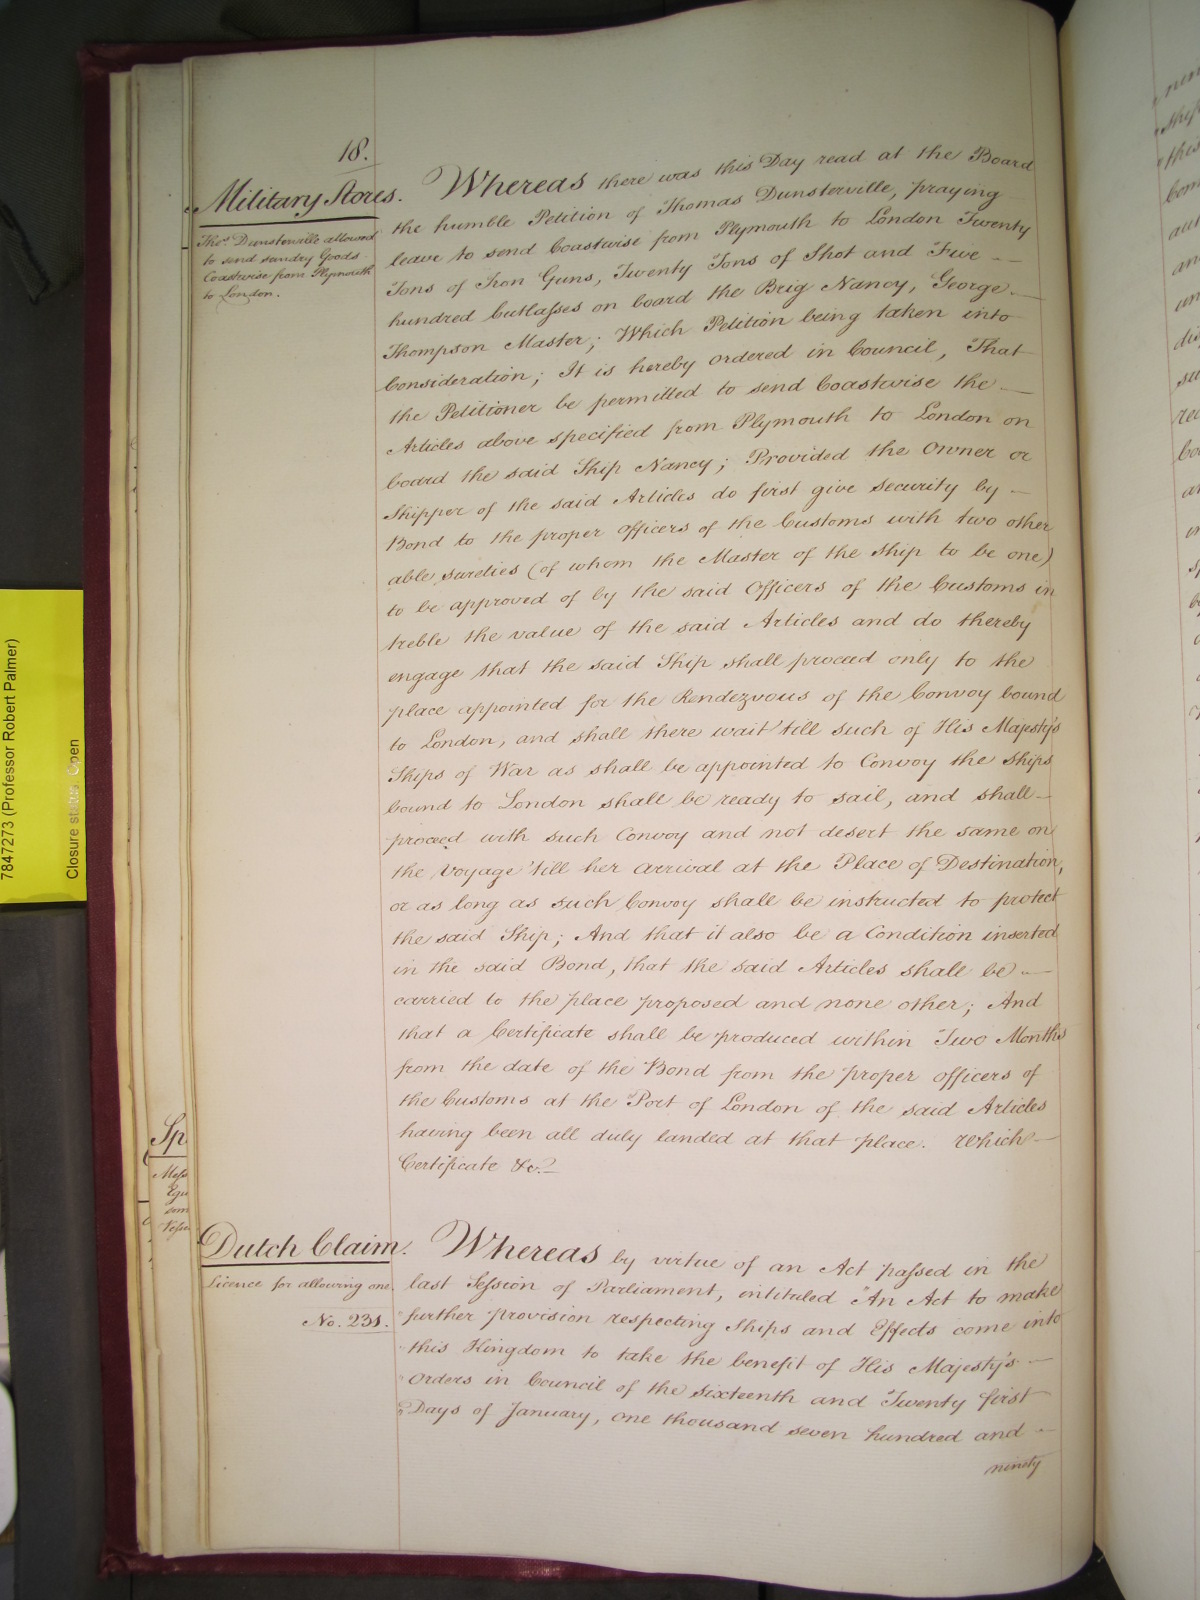 18.
Military Stores.
Thos. Dunsterville allowed
to send sundry Goods
Coastwise from Plymouth
to London.
Whereas there was this Day read at the Board
the humble Petition of Thomas Dunsterville, praying
leave to send Coastwise from Plymouth to London Twenty
Tons of Iron Guns, Twenty Tons of Shot and Five
hundred Cutlasses on board the Brig Nancy, George
Thompson Master; Which Petition being taken into
Consideration; It is hereby ordered in Council, That
the Petitioner be permitted to send Coastwise the
Articles above specified from Plymouth to London on
board the said Ship Nancy; Provided the Owner or
Shipper of the said Articles do first give security by
Bond to the proper Officers of the Customs with two other
able sureties (of whom the Master of the Ship to be one)
to be approved of by the said Officers of the Customs in
treble the value of the said Articles and do thereby
engage that the said Ship shall proceed only to the
place appointed for the Rendezvous of the Convoy bound
to London, and shall there wait 'till such of His Majesty's
Ships of War as shall be appointed to Convoy the Ships
bound to London shall be ready to sail, and shall
proceed with such Convoy and not desert the same on
the Voyage 'till her arrival at the Place of Destination,
or as long as such Convoy shall be instructed to protect
the said Ship; And that it also be a Condition inserted
in the said Bond, that the said Articles shall be
carried to the place proposed and none other; And
that a Certificate shall be produced within Two Months
from the date of the Bond from the proper officers of
the Customs at the Port of London of the said Articles
having been all duly landed at that place. Which
Certificate &c.
Dutch Claim.
Licence for allowing one.
No. 231.
Whereas by virtue of an Act passed in the
last Session of Parliament, intituled "An Act to make
"further provision respecting Ships and Effects come into
"this Kingdom to take the benefit of His Majesty's
"Orders in Council of the sixteenth and Twenty first
"Days of January, One thousand seven hundred and
ninety
Sp
7847273 (Professor Robert Palmer)
Closure status: Open